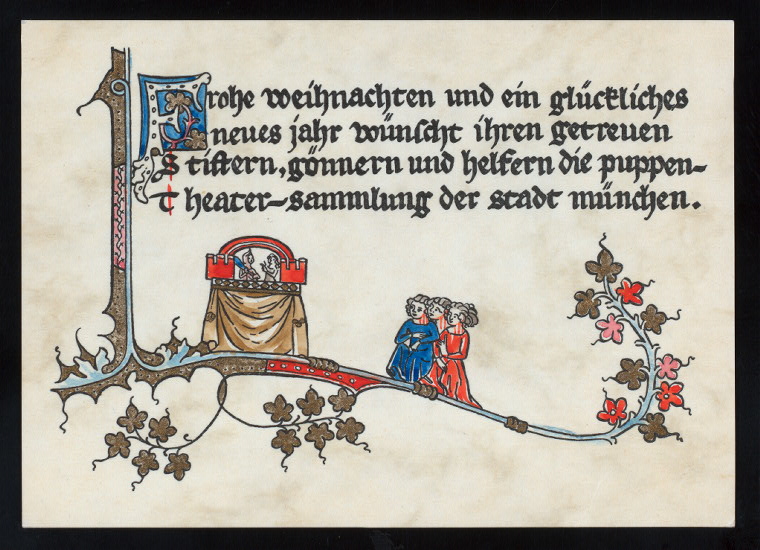 Frohe weihnachten und ein glückliches
neues jahr wünscht ihren getreuen
Stiftern, gönnern und helfern die puppen-
Theater-sammlung der stadt münchen.